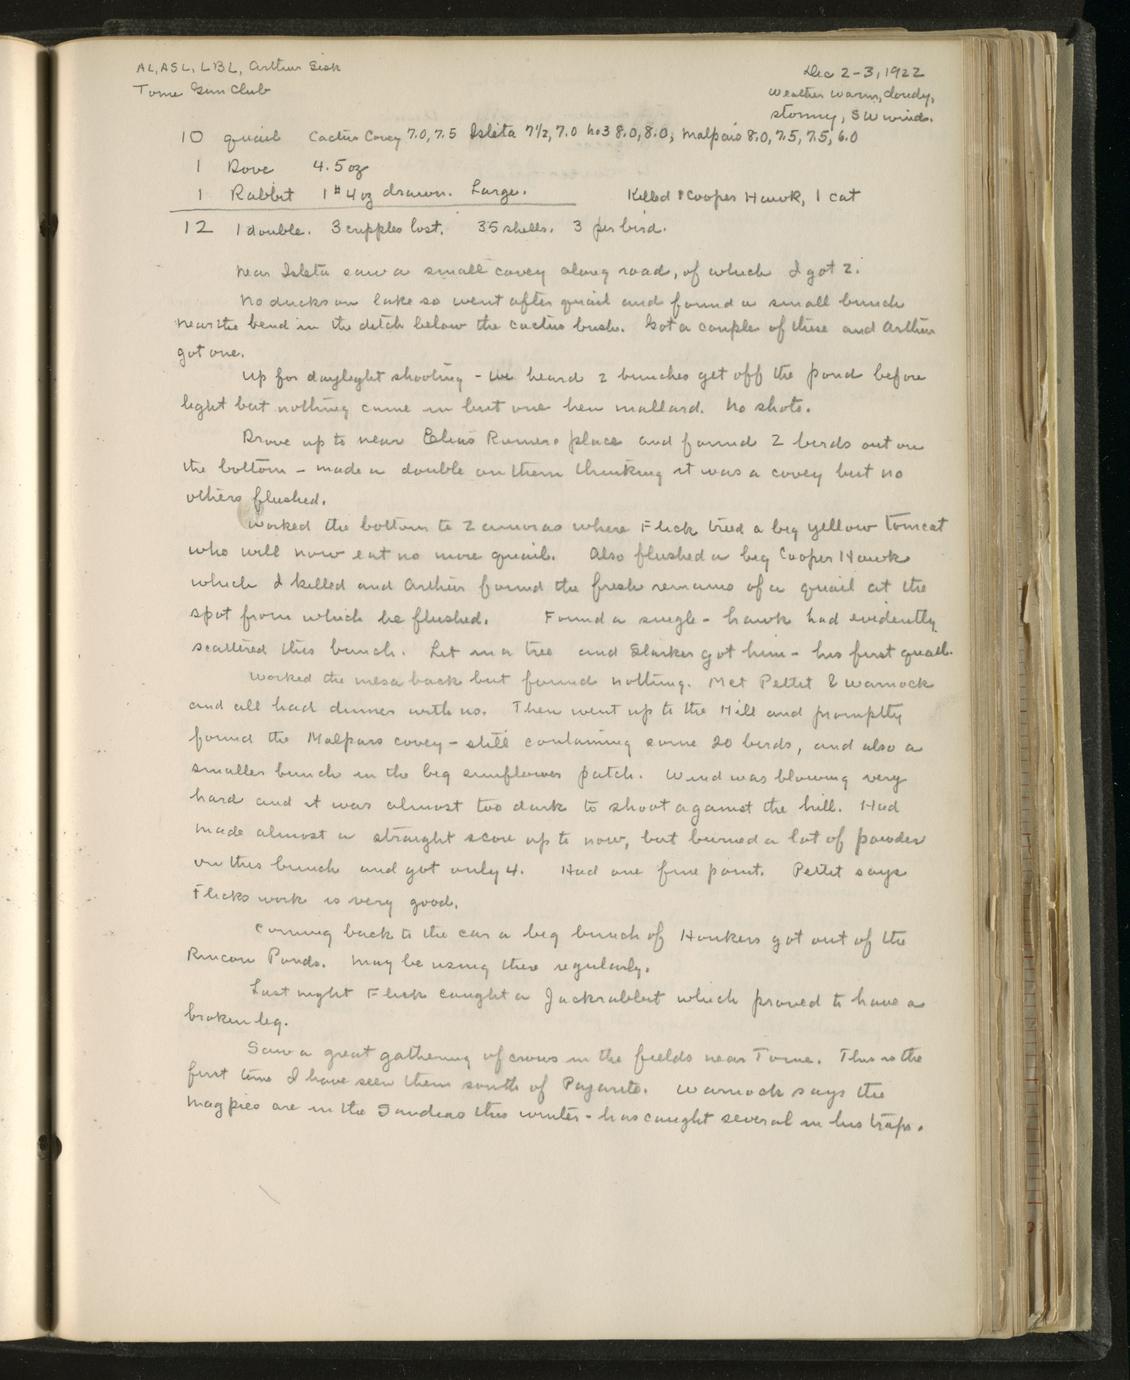 AL, ASL, LBL, Arthur Sisk
Dec 2-3, 1922
Tome Gun Club
Weather warm, cloudy,
stormy, SW winds.
10 quail Cactus Covey 7.0, 7.5 Isleta 7½, 7.0 No3 8.0, 8.0, Malpais 8.0, 7.5, 7.5, 6.0
1 Dove 4.5 oz
1 Rabbit 1# 4oz drawn. Large. Killed 1 Cooper Hawk, 1 cat
12 1 double. 3 cripples lost. 35 shells. 3 per bird.
Near Isleta saw a small covey along road, of which I got 2.
No ducks on lake so went after quail and found a small bunch
near the bend in the ditch below the cactus bush. Got a couple of these and Arthur
got one.
Up for daylight shooting - we heard 2 bunches get off the pond before
light but nothing came in but one hen mallard. No shots.
Drove up to near Elias Romero place and found 2 birds out on
the bottom - made a double on them thinking it was a covey but no
others flushed.
Worked the bottom to where Flick treed a big yellow tomcat
who will now eat no more quail. Also flushed a big Cooper Hawk
which I killed and Arthur found the fresh remains of a quail at the
spot from which he flushed. Found a single - hawk had evidently
scattered this bunch. Lit in a tree and Starker got him - his first quail.
Worked the mesa back but found nothing. Met Pettit & Warnock
and all had dinner with us. Then went up to the Hill and promptly
found the Malpais covey - still containing some 20 birds, and also a
smaller bunch in the big sunflower patch. Wind was blowing very
hard and it was almost too dark to shoot against the hill. Had
made almost a straight score up to now, but burned a lot of powder
on this bunch and got only 4. Had one fine point. Pettit says
Flicks work is very good.
Coming back to the car a big bunch of Honkers got out of the
Rincon Ponds. May be using there regularly.
Last night Flick caught a Jackrabbit which proved to have a
broken leg.
Saw a great gathering of crows in the fields near Tome. This is the
first time I have seen them south of Pajarito. Warnock says the
magpies are in the Sandias this winter - has caught several in his traps.